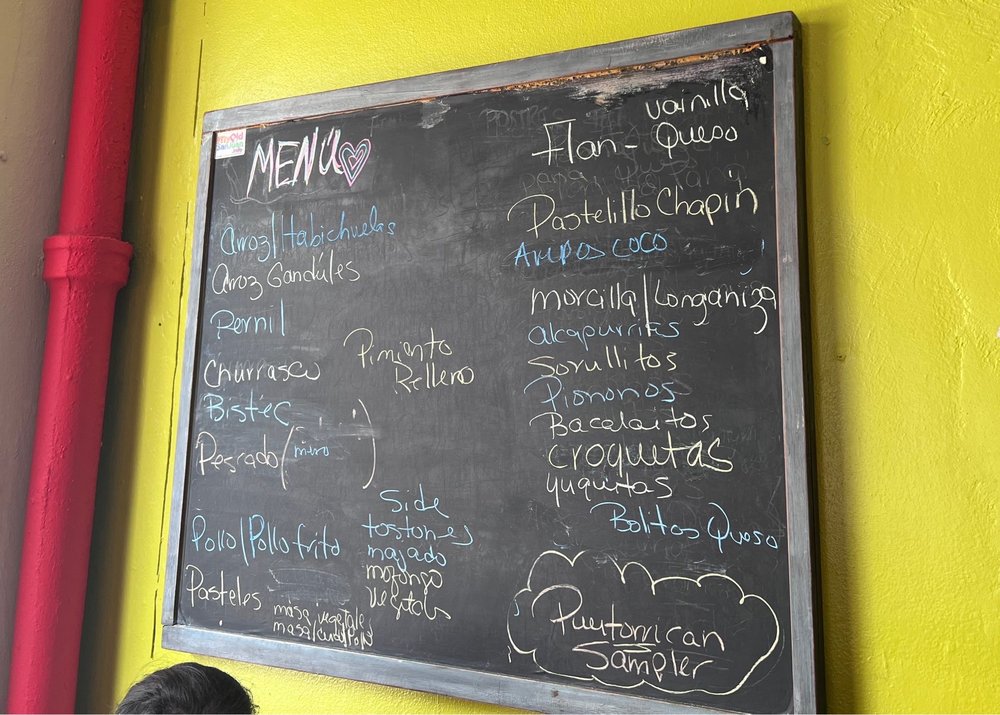 MENÚ
Arroz/Habichuelas
Arroz Gandúles
Pernil
Churrasco
Bistéc
Pescado (mero)
Pollo/Pollo frito
Pasteles
masa vegetale
masa
Pimiento
Relleno
Side
tostones
majado
mofongo
Vegetals
vainilla
Flan - Queso
Pastelillo Chapin
COCO
morcilla/Longaniza
alcapurrias
Sorullitos
Piononos
Bacalaitos
croquetas
yuquitas
Bolitos Queso
Puertorrican
Sampler